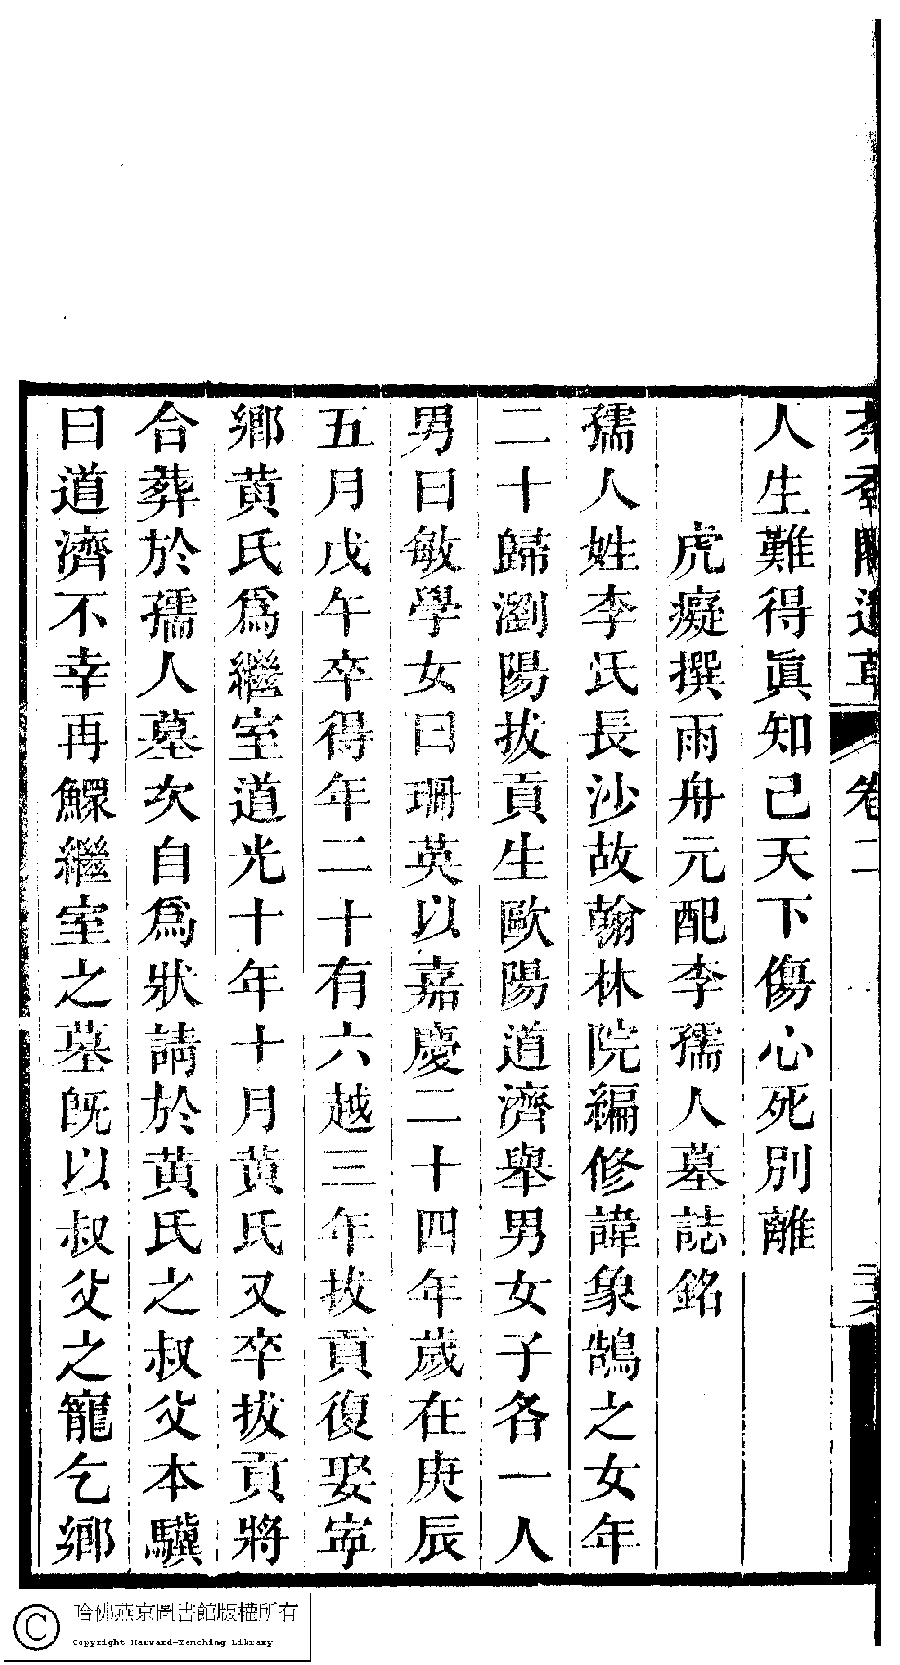 卷二
人生難得眞知己天下傷心死別離
虎癡撰雨舟元配李孺人墓誌銘
孺人姓李氏長沙故翰林院編修諱象鵠之女年
二十歸瀏陽拔貢生歐陽道濟舉男女子各一人
男曰敏學女曰珊英以嘉慶二十四年歲在庚辰
五月戊午卒得年二十有六越三年拔貢復娶寧
鄉黃氏爲繼室道光十年十月黃氏又卒拔貢將
合葬於孺人墓次自爲狀請於黃氏之叔父本驥
曰道濟不幸再鰥繼室之墓旣以叔父之寵乞鄉
哈佛燕京圖書館版權所有
Copyright Harvard-Yenching Library